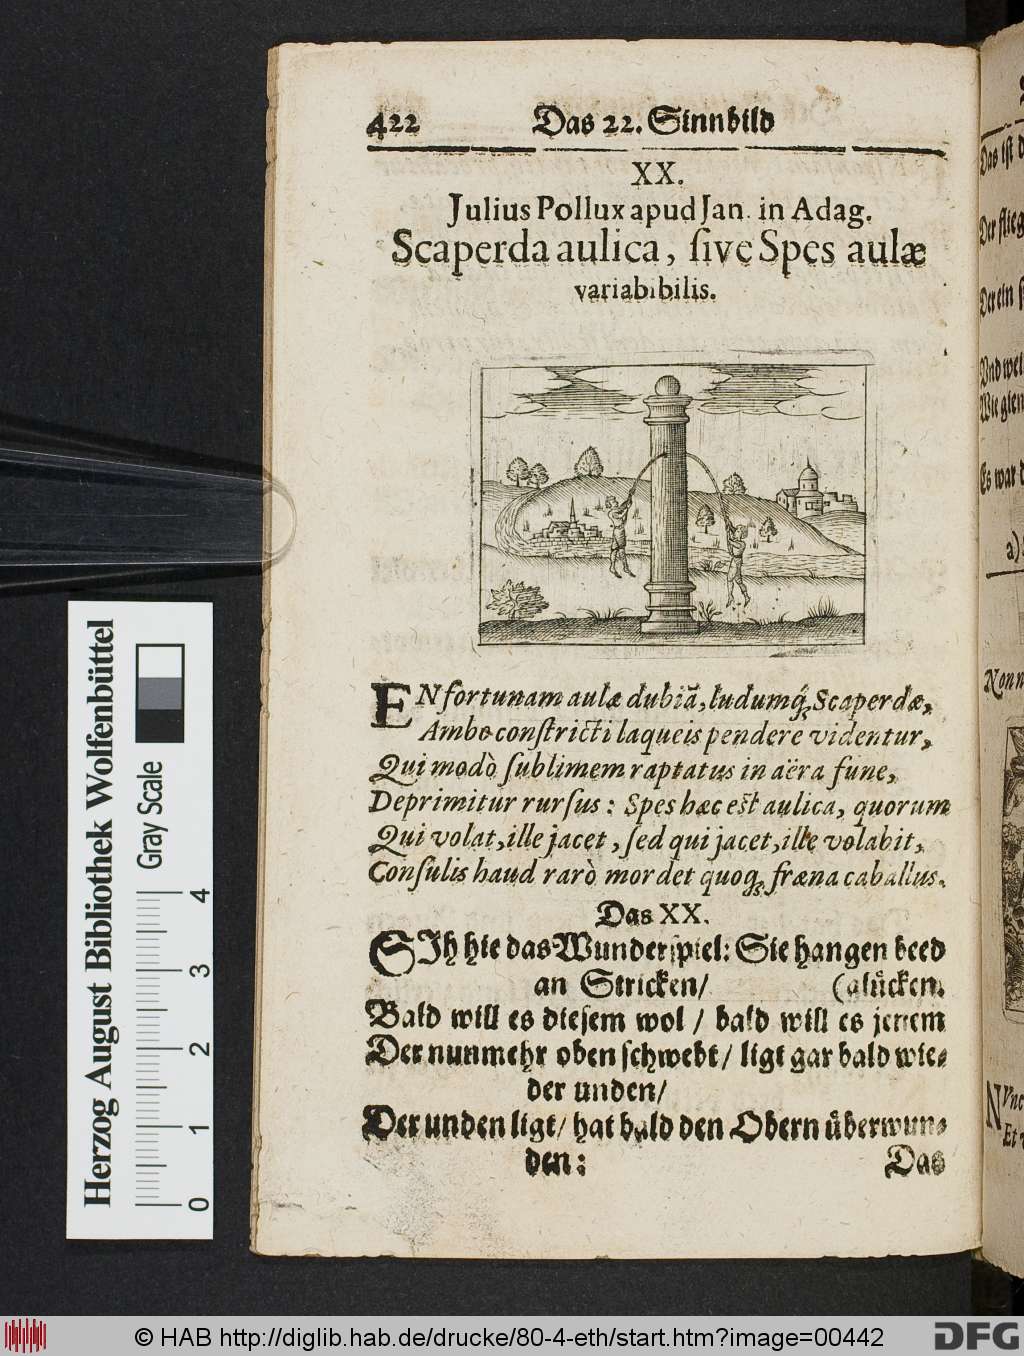 422 Das 22. Sinnbild
XX.
Julius Pollux apud Jan. in Adag.
Scaperda aulica, ſive Spes aulæ
variabibilis.
EN fortunam aulæ dubiā, ludumq́; Scaperdæ,
Ambo conſtricti laqueis pendere videntur,
Qui modò ſublimem raptatus in aëra fune,
Deprimitur rurſus: Spes hæc est aulica, quorum
Qui volat, ille jacet, ſed qui jacet, ille volabit,
Conſulis haud rarò mordet quoq; fræna caballus.
Das XX.
SIh hie das Wunderſpiel: Sie hangen beed
an Stricken/ (glücken.
Bald will es dieſem wol / bald will es jenem
Der nunmehr oben ſchwebt/ ligt gar bald wie-
der unden/
Der unden ligt/ hat bald den Obern überwun-
den: Das
Das iſt
Der
Der ein
Und
Wie
Es war
a)
Herzog August Bibliothek Wolfenbüttel
Gray Scale
0 1 2 3 4
© HAB http://diglib.hab.de/drucke/80-4-eth/start.htm?image=00442
DFG